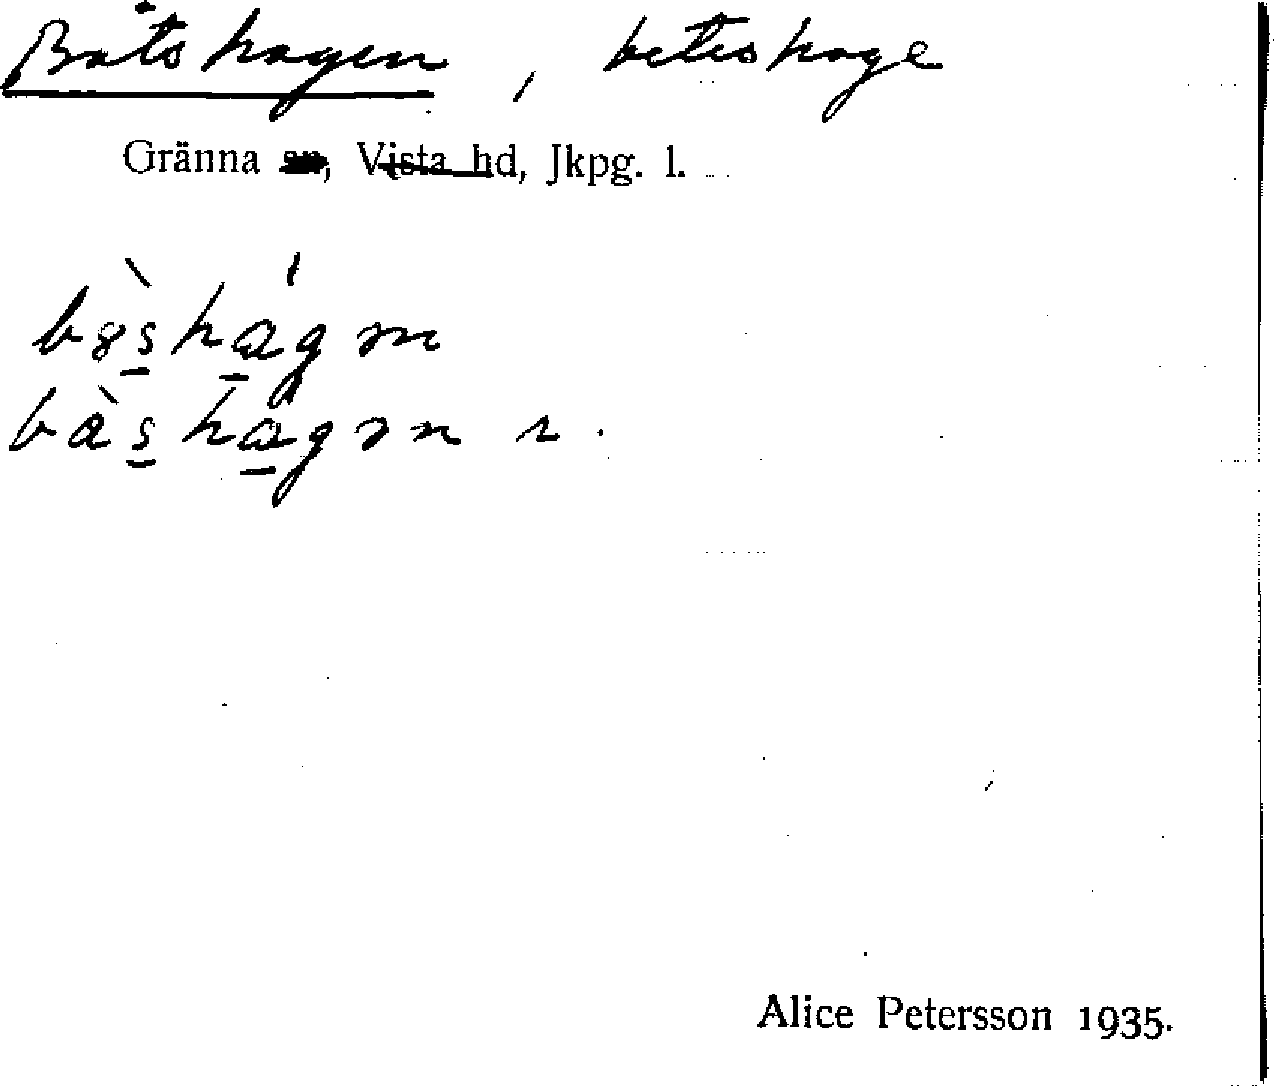 Båtshagen, beteshage
Gränna sn, Vista hd, Jkpg. l.
bȣ̀s̱há̱gən
bàs̱há̱gən r.
Alice Petersson 1935.